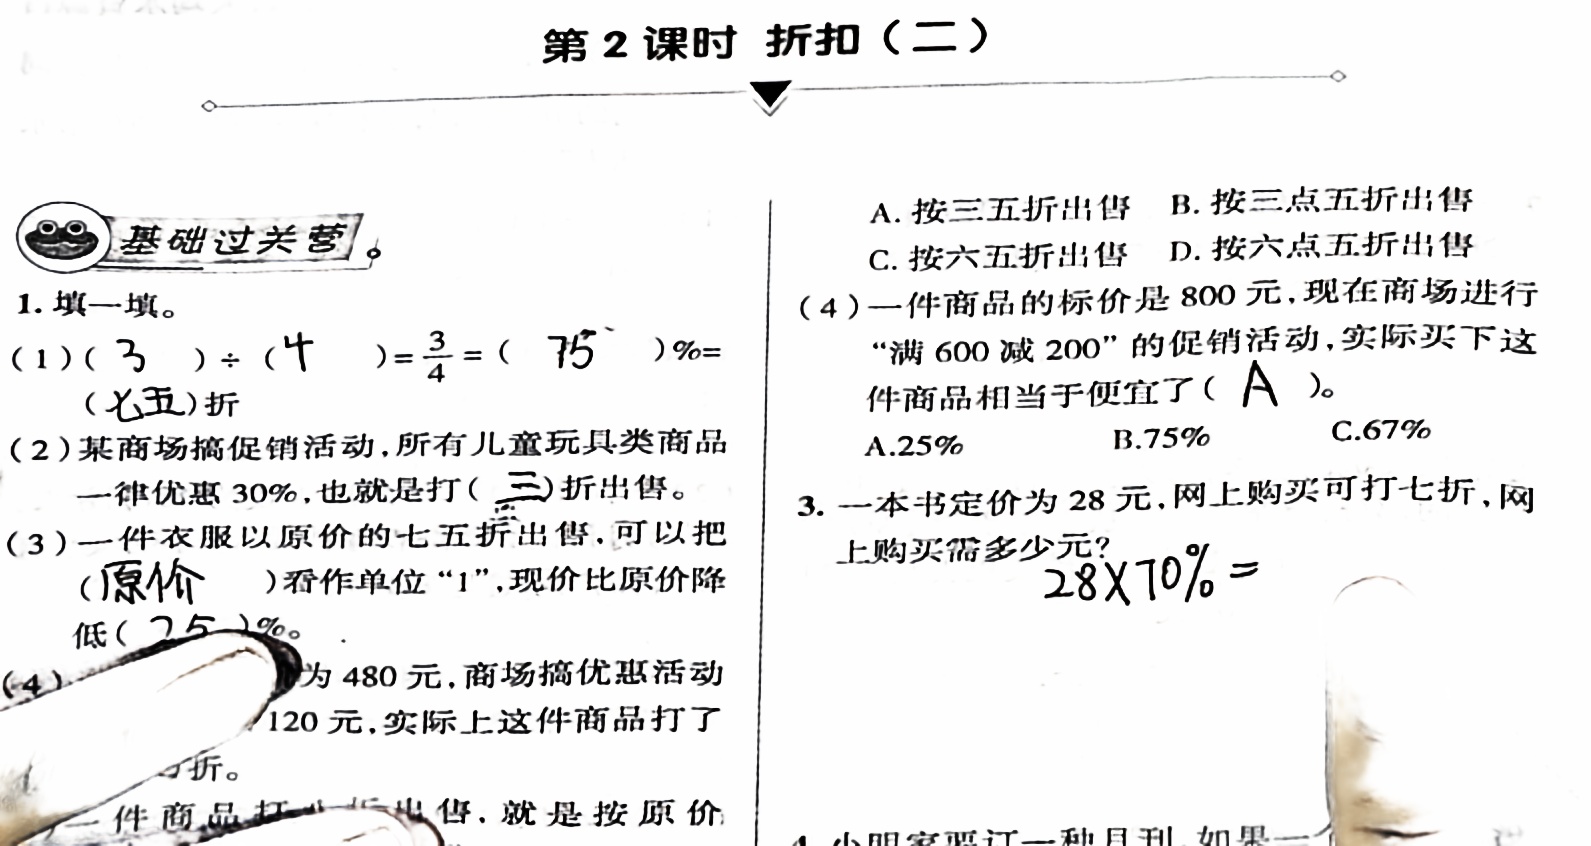 第2课时 折扣(二)
基础过关营
1. 填一填。
(1)( 3 )÷( 4 )=3/4=( 75 )%=
(七五)折
(2)某商场搞促销活动,所有儿童玩具类商品
一律优惠30%,也就是打( 三 )折出售。
(3)一件衣服以原价的七五折出售,可以把
(原价 )看作单位“1”,现价比原价降
低( 25 )%。
(4) 为480元,商场搞优惠活动
120元,实际上这件商品打了
折。
一件商品打 折出售,就是按原价
A. 按三五折出售 B. 按三点五折出售
C. 按六五折出售 D. 按六点五折出售
(4)一件商品的标价是800元,现在商场进行
“满600减200”的促销活动,实际买下这
件商品相当于便宜了( A )。
A.25% B.75% C.67%
3. 一本书定价为28元,网上购买可打七折,网
上购买需多少元?
28×70%=
4. 小明家要订一种月刊,如果一